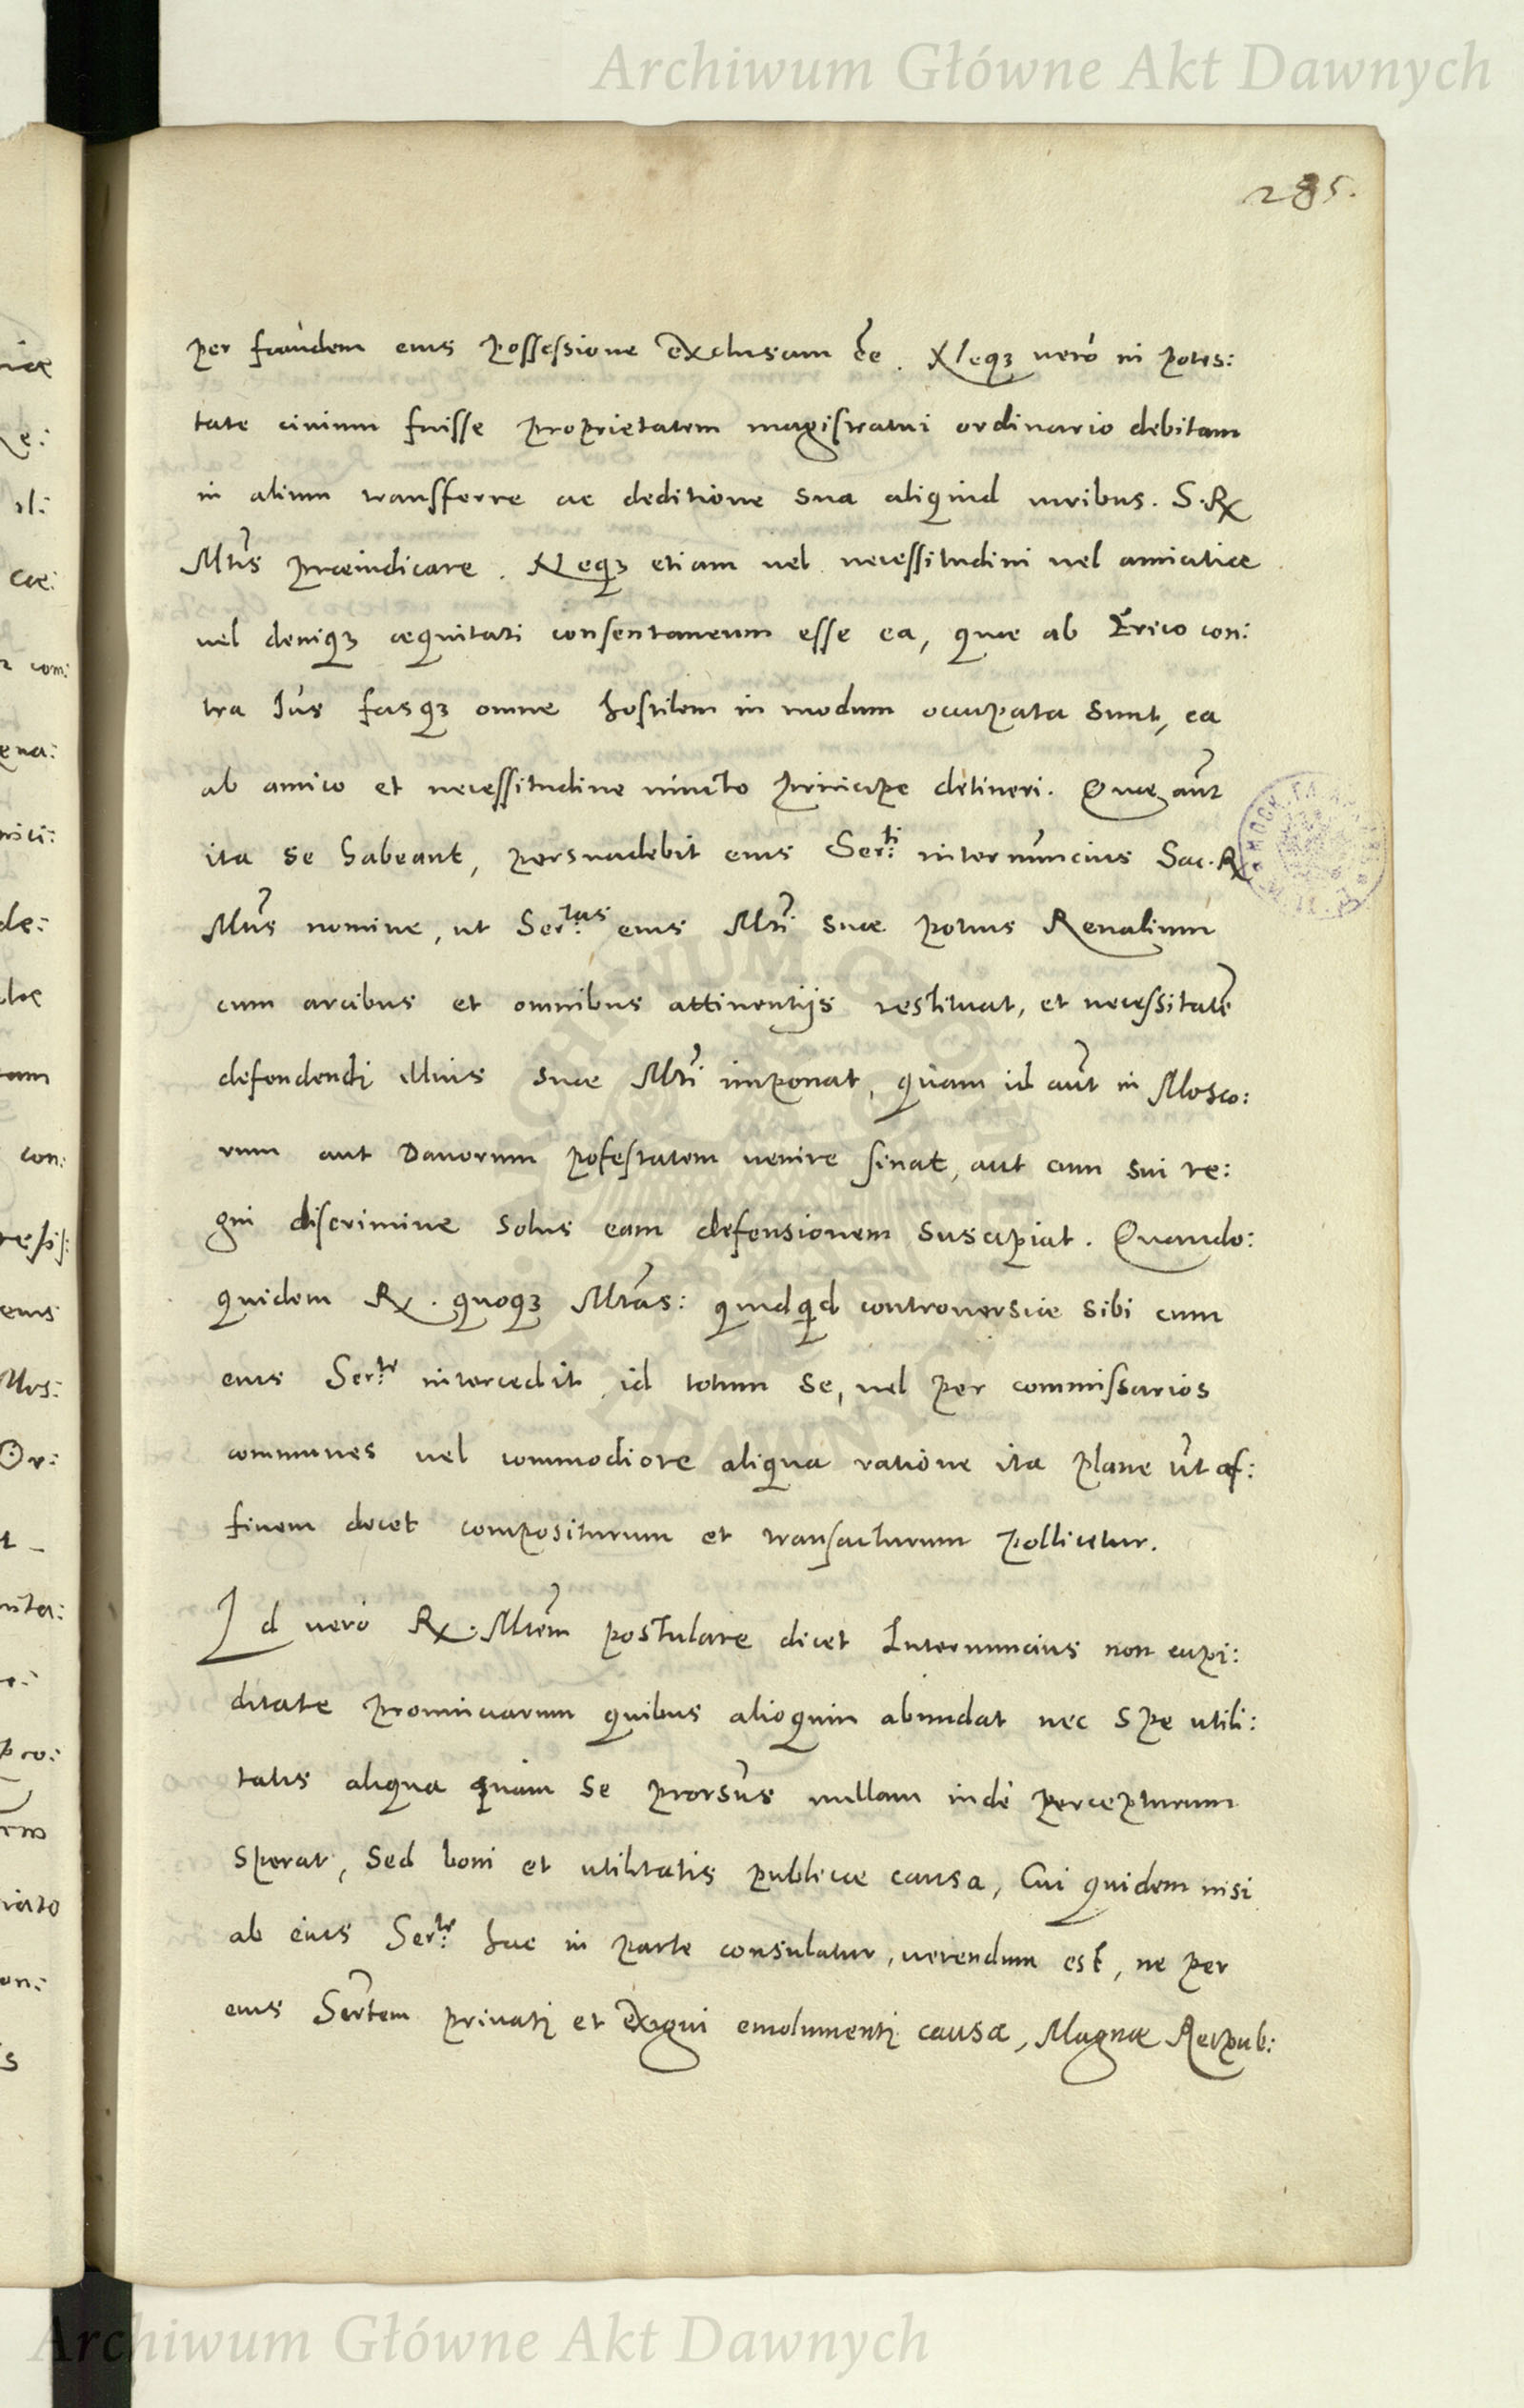 Archiwum Główne Akt Dawnych
285.
per fraudem eius possessione exclusam ee͂. Neqꝫ vero in potes:
tate civium fuisse proprietatem magistratui ordinario debitam
in alium transferre ac deditione sua aliquid iuribus. S. Rx
Mtis praeiudicare. Neqꝫ etiam vel necessitudini vel amicitiae
vel deniqꝫ aequitati consentaneum esse ea, quae ab Erico con:
tra Ius fasqꝫ omne hostilem in modum occupata sunt, ea
ab amico et necessitudine vincto principe detineri. Quae aut
ita se habeant, persuadebit eius Ser:ti internuncius Sac. Rx
Mtis nomine, ut Ser:tas eius Mti suae potius Revalium
cum arcibus et omnibus attinentijs restituat, et necessitatē
defendendi illius suae Mti imponat, quam id aut in Mosco:
rum aut Danorum potestatem venire sinat, aut cum sui re:
gni discrimine solus eam defensionem suscipiat. Quando:
quidem Rx. quoqꝫ Mtas: quidqd controversiae sibi cum
eius Ser:te intercedit id totum se, vel per commissarios
communes vel commodiore aliqua ratione ita plane ut af:
finem decet compositurum et transacturum pollicetur.
Id vero Rx. Mtem postulare dicet Internuncius non cupi:
ditate provinciarum quibus alioquin abundat nec spe utili:
tatis aliqua quam se prorsus nullam inde percepturum
sperat, sed boni et utilitatis publicae causa, Cui quidem nisi
ab eius Ser:te hac in parte consulatur, verendum est, ne per
eius Sertem privati et exigui emolumenti causa, Magnae Reipub:
Archiwum Główne Akt Dawnych